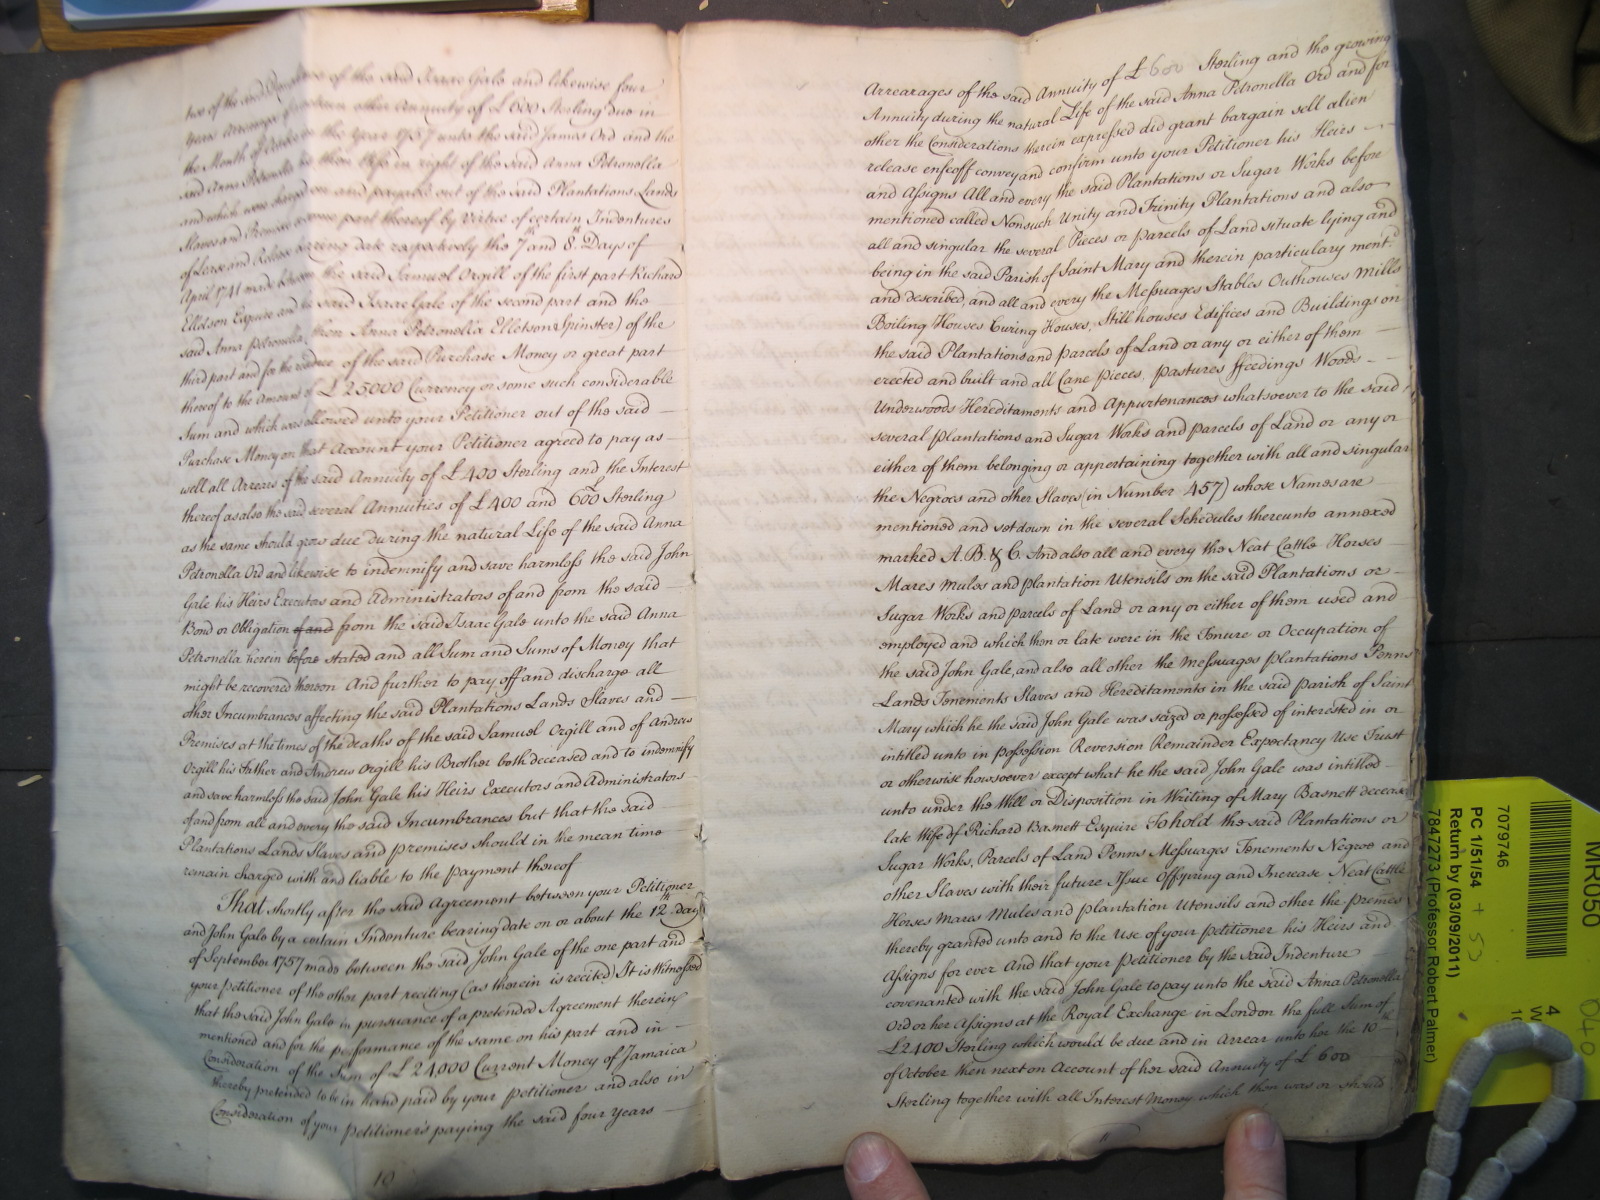 two of the said of the said Isaac Gale and likewise four
Years Arrearage of another Annuity of £600 Sterling due in
the Month of October in the Year 1757 unto the said James Ord and the
said Anna Petronella his then Wife in right of the said Anna Petronella
and which were charged on and payable out of the said Plantations Lands
Slaves and Premises or some part thereof by Virtue of certain Indentures
of Lease and Release bearing date respectively the 7th and 8th Days of
April 1741 made between the said Samuel Orgill of the first part Richard
Elletson Esquire and the said Isaac Gale of the second part and the
said Anna Petronella (then Anna Petronella Elletson Spinster) of the
third part and for the residue of the said Purchase Money or great part
thereof to the Amount of £25000 Currency or some such considerable
Sum and which was allowed unto your Petitioner out of the said
Purchase Money on that Account your Petitioner agreed to pay as
well all Arrears of the said Annuity of £400 Sterling and the Interest
thereof as also the said several Annuities of £400 and £600 Sterling
as the same should grow due during the natural Life of the said Anna
Petronella Ord and likewise to indemnify and save harmless the said John
Gale his Heirs Executors and Administrators of and from the said
Bond or Obligation of and from the said Isaac Gale unto the said Anna
Petronella herein before stated and all Sum and Sums of Money that
might be recovered thereon And further to pay off and discharge all
other Incumbrances affecting the said Plantations Lands Slaves and
Premises at the times of the deaths of the said Samuel Orgill and of Andrew
Orgill his Father and Andrew Orgill his Brother both deceased and to indemnify
and save harmless the said John Gale his Heirs Executors and Administrators
of and from all and every the said Incumbrances but that the said
Plantations Lands Slaves and premises should in the mean time
remain charged with and liable to the payment thereof
That shortly after the said Agreement between your Petitioner
and John Gale by a certain Indenture bearing date on or about the 12th day
of September 1757 made between the said John Gale of the one part and
your petitioner of the other part reciting (as therein is recited) It is Witnessed
that the said John Gale in pursuance of a pretended Agreement therein
mentioned and for the performance of the same on his part and in
Consideration of the Sum of £24,000 Current Money of Jamaica
thereby pretended to be in hand paid by your petitioner and also in
Consideration of your Petitioner's paying the said four Years
10
Arrearages of the said Annuity of £600 Sterling and the growing
Annuity during the natural Life of the said Anna Petronella Ord and for
other the Considerations therein expressed did grant bargain sell alien
release enfeoff convey and confirm unto your Petitioner his Heirs
and Assigns All and every the said Plantations or Sugar Works before
mentioned called Nonsuch Unity and Trinity Plantations and also
all and singular the several Pieces or parcels of Land situate lying and
being in the said Parish of Saint Mary and therein particulary ment.d
and described, and all and every the Messuages Stables Outhouses Mills
Boiling Houses Curing Houses, Still houses Edifices and Buildings on
the said Plantations and parcels of Land or any or either of them
erected and built and all Cane pieces, pastures ffeedings Woods
Underwoods Hereditaments and Appurtenances whatsoever to the said
several plantations and Sugar Works and parcels of Land or any or
either of them belonging or appertaining together with all and singular
the Negroes and other Slaves (in Number 457) whose Names are
mentioned and set down in the several Schedules thereunto annexed
marked A. B. & C. And also all and every the Neat Cattle Horses
Mares Mules and plantation Utensils on the said Plantations or
Sugar Works and parcels of Land or any or either of them used and
employed and which then or late were in the Tenure or Occupation of
the said John Gale, and also all other the Messuages plantations Penns
Lands Tenements Slaves and Hereditaments in the said parish of Saint
Mary which he the said John Gale was seized or possessed of interested in or
intitled unto in possession Reversion Remainder Expectancy Use Trust
or otherwise howsoever except what he the said John Gale was intitled
unto under the Will or Disposition in Writing of Mary Basnett deceased
late Wife of Richard Basnett Esquire To hold the said Plantations or
Sugar Works, Parcels of Land Penns Messuages Tenements Negroe and
other Slaves with their future Issue Offspring and Increase Neat Cattle
Horses Mares Mules and plantation Utensils and other the premes
thereby granted unto and to the Use of your petitioner his Heirs and
Assigns for ever And that your petitioner by the said Indenture
covenanted with the said John Gale to pay unto the said Anna Petronella
Ord or her Assigns at the Royal Exchange in London the full Sum of
£2400 Sterling which would be due and in Arrear unto her the 10th
of October then next on Account of her said Annuity of £600
Sterling together with all Interest Money which then was or should
11
MR050
7079746
PC 1/51/54 + 53
Return by (03/09/2011)
7847273 (Professor Robert Palmer)
4
040